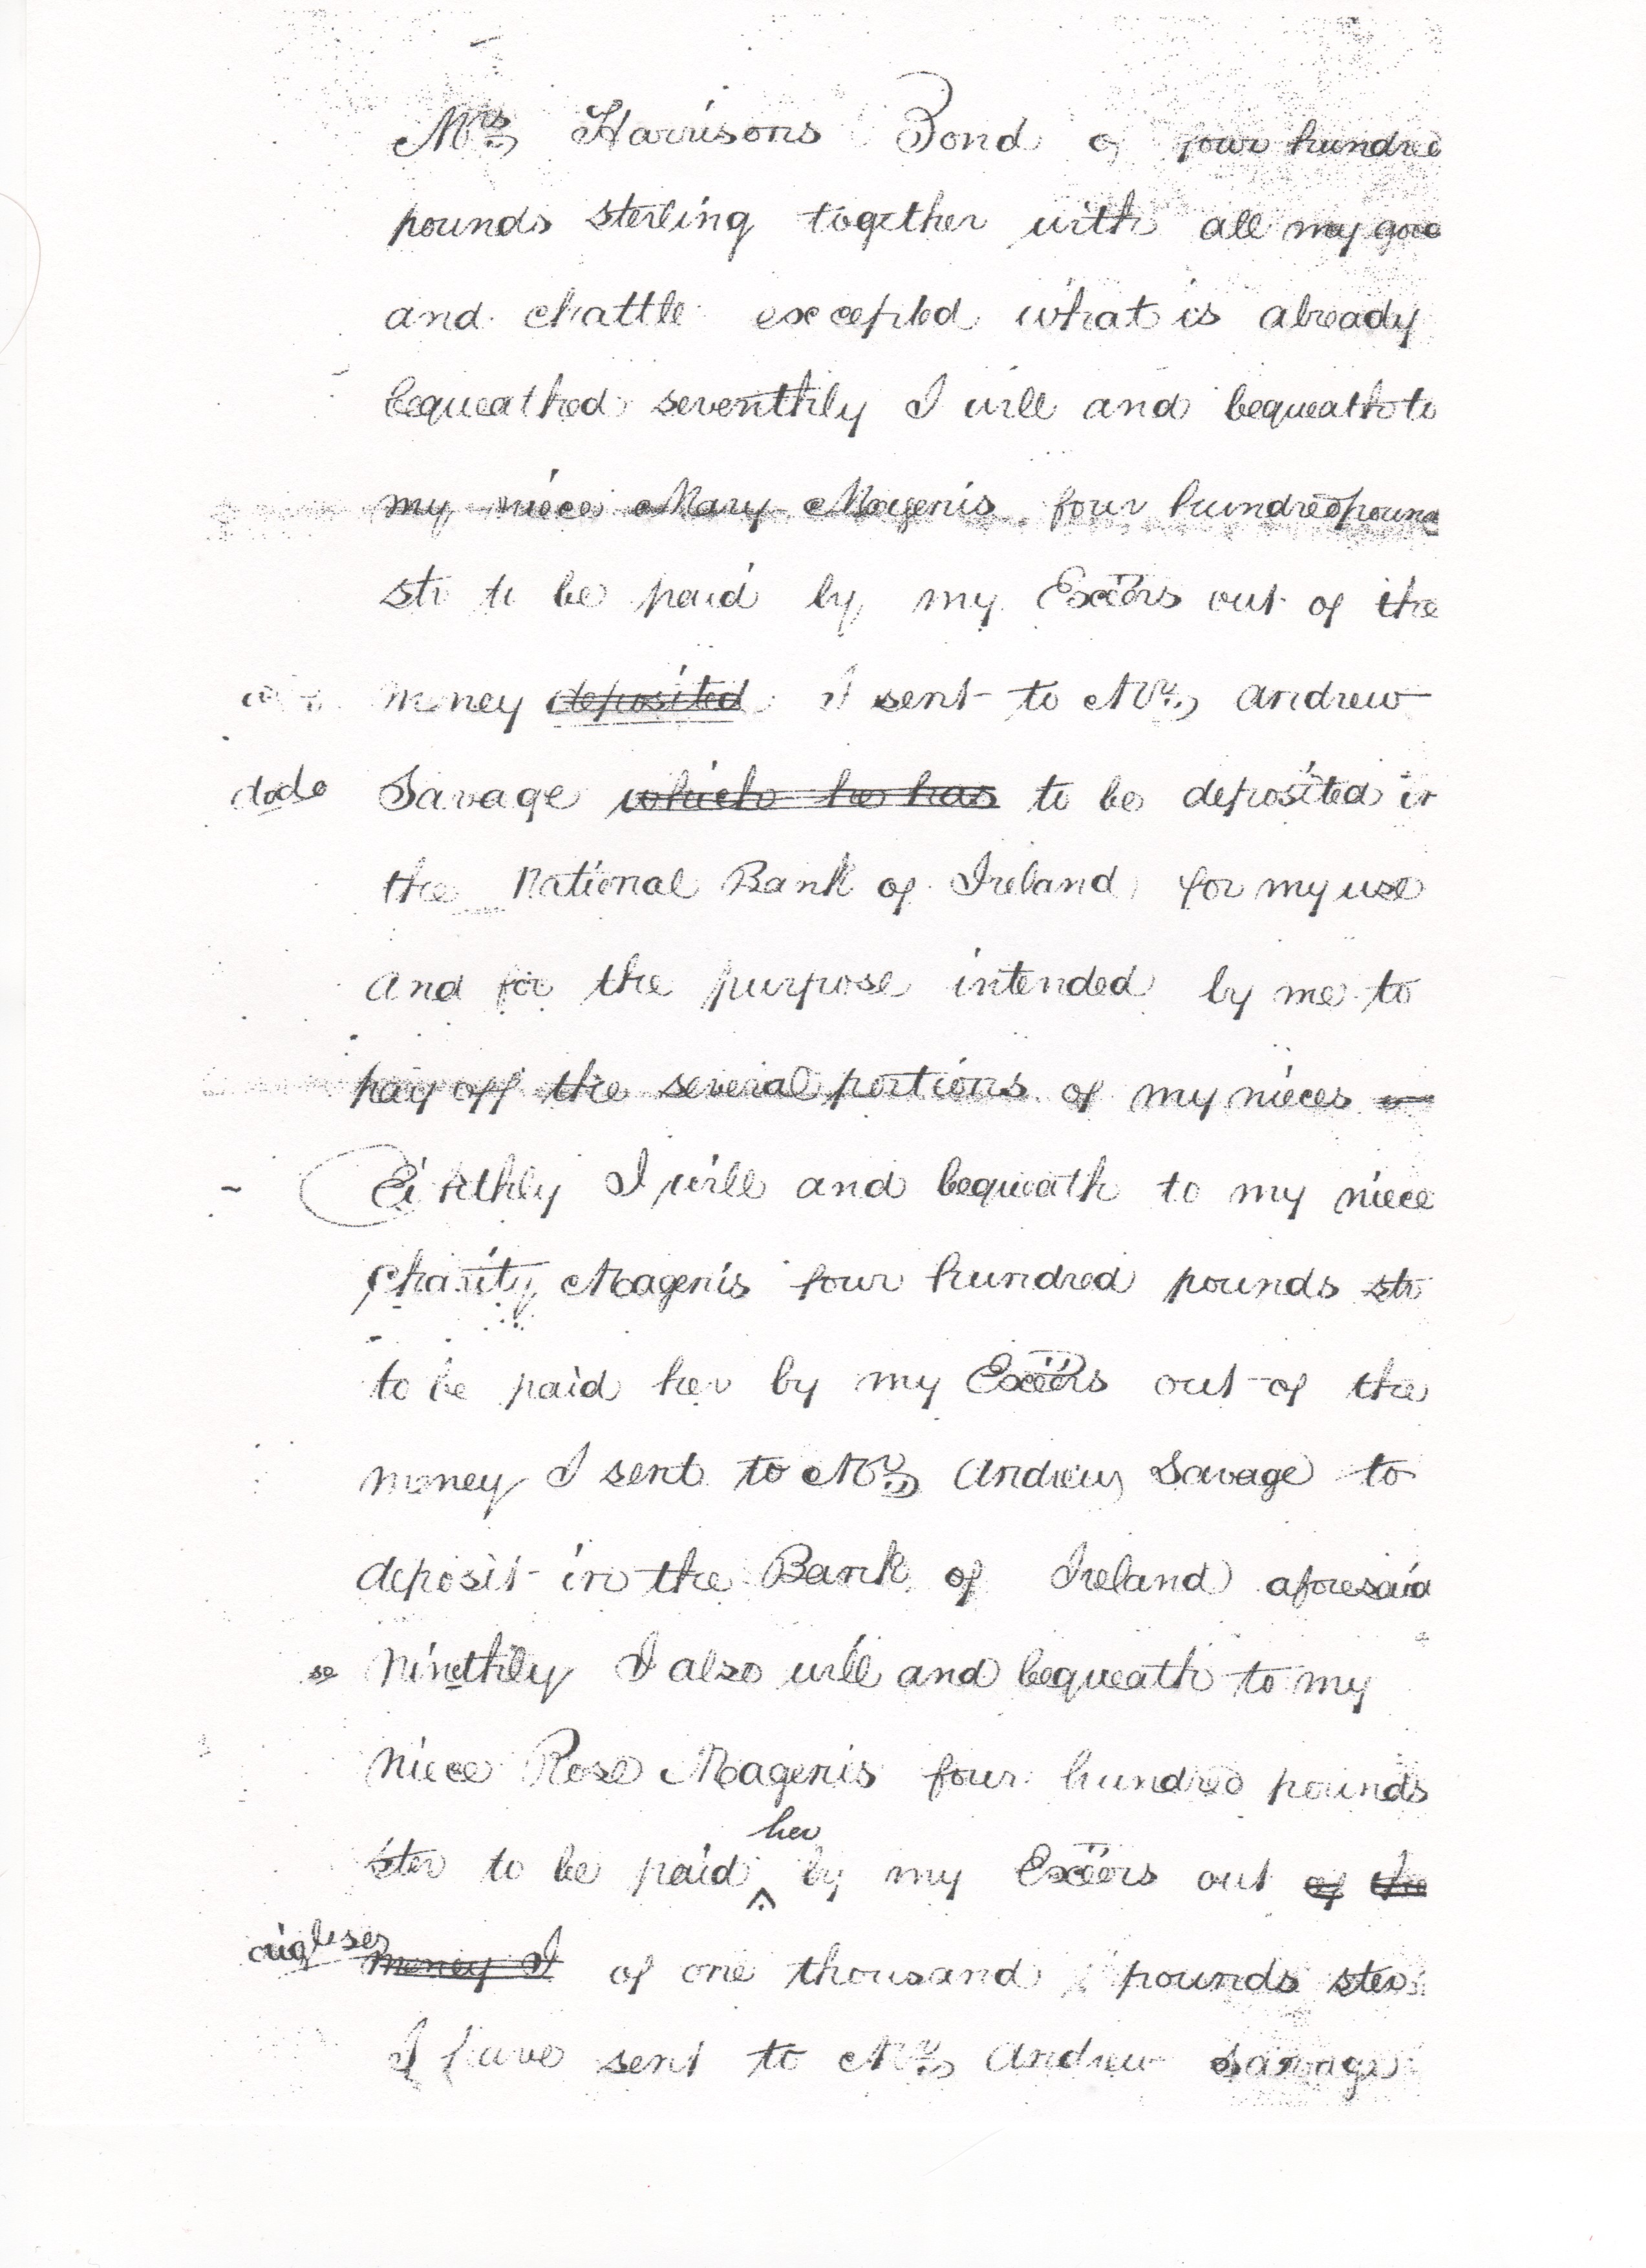 Mrs Harrisons Bond of four hundred
pounds sterling together with all my goo
and chattle excepted what is already
bequeathed seventhly I will and bequeath to
my niece Mary Magenis four hundred pound
str to be paid by my Excors out of the
money deposited I sent to Mr Andrew
dodo Savage which he has to be deposited in
the National Bank of Ireland for my use
and for the purpose intended by me to
pay off the several portions of my nieces
Eighthly I will and bequeath to my niece
Charity Magenis four hundred pounds str
to be paid her by my Excors out of the
money I sent to Mr Andrew Savage to
deposit in the Bank of Ireland aforesaid
se Ninethly I also will and bequeath to my
niece Rose Magenis four hundred pounds
ster to be paid her by my Excors out of the
money I of one thousand pounds ster
I have sent to Mr Andrew Savage